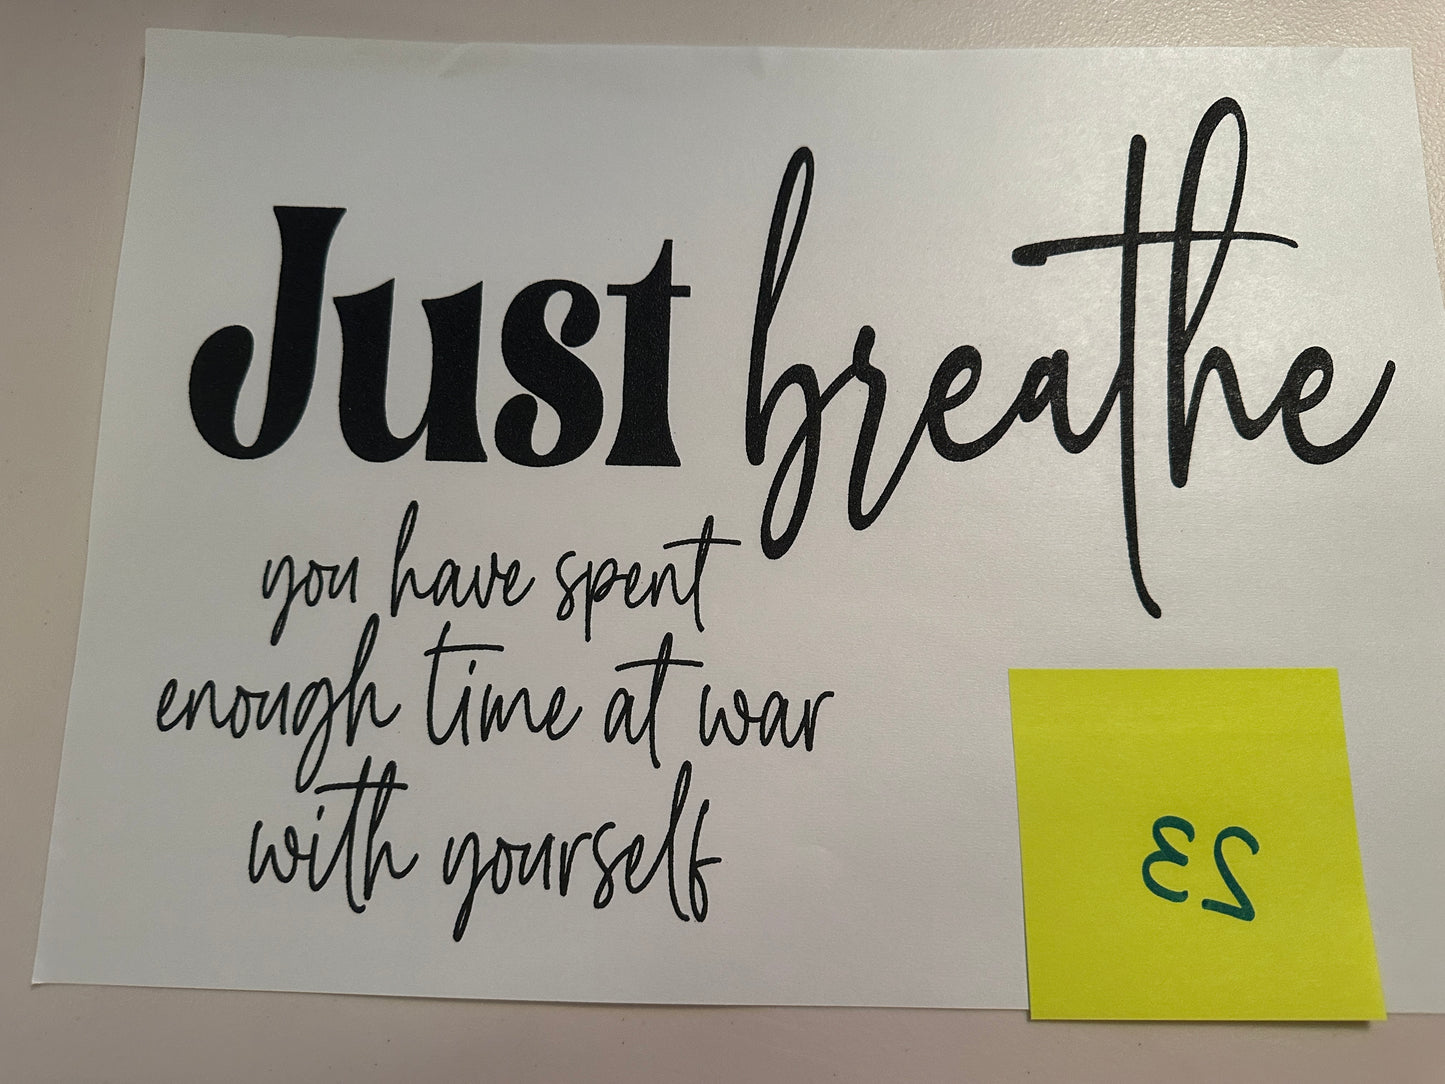 Just breathe
you have spent
enough time at war
with yourself
23